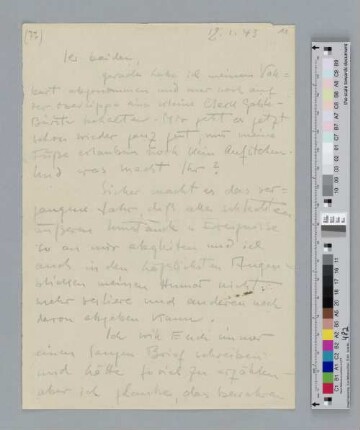 12.1.43
Ihr beiden,
gerade habe ich meinen Voll=
bart abgenommen und nur noch auf
der Oberlippe eine kleine Clark Gable-
Bürste behalten. Mir geht es jetzt
schon wieder ganz gut, nur meine
Füße erlauben noch kein Aufstehen.
Und was macht Ihr?
Sicher macht es das ver=
gangene Jahr, daß alle schlechten
äusseren Umstände u. Ereignisse
so an mir abgleiten und ich
auch in den häßlichsten Augen=
blicken meinen Humor nicht
mehr verliere und anderen noch
davon abgeben kann.
Ich will Euch immer
einen langen Brief schreiben
und hätte so viel zu erzählen
aber ich glaube, das